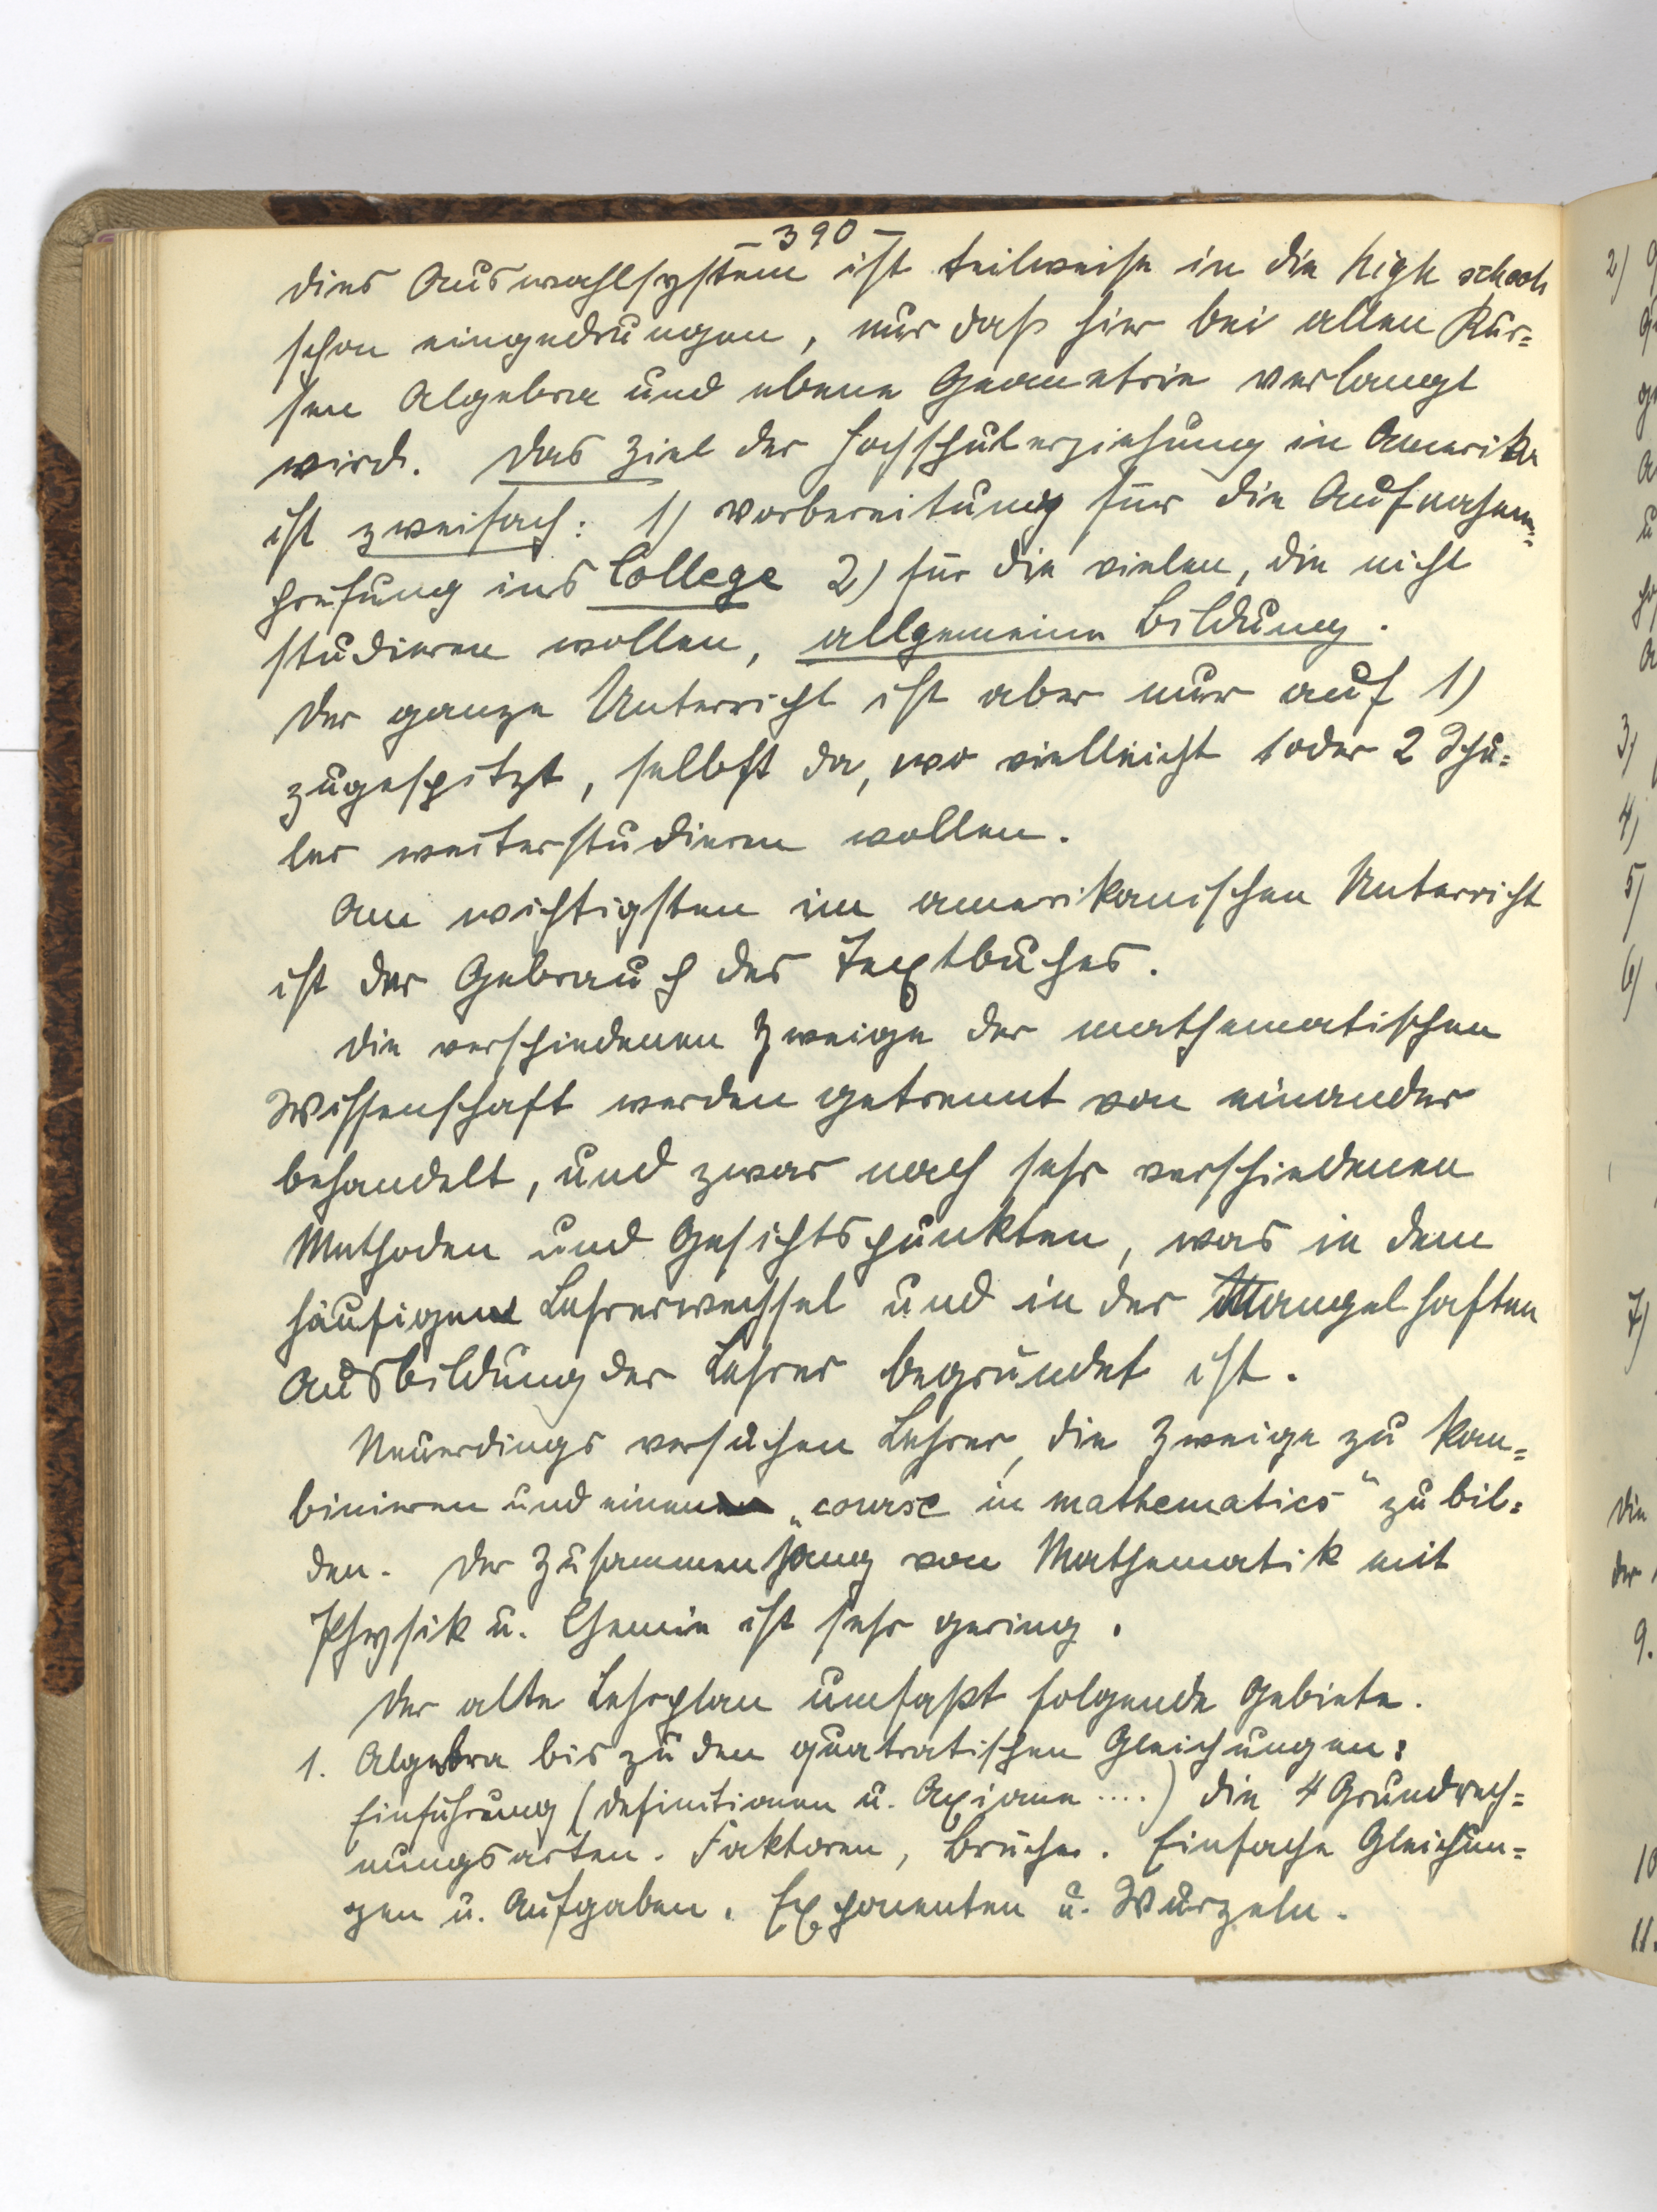 - 390 -
dies Auswahlsystem ist teilweise in die high schools
schon eingedrungen, nur daß hier bei allen Kur=
sen Algebra und ebene Geometrie verlangt
wird. Das Ziel der Hochschulerziehung in Amerika
ist zweifach: 1) Vorbereitung für die Aufnahme=
prüfung ins College 2) für die vielen, die nicht
studieren wollen, allgemeine Bildung.
Der ganze Unterricht ist aber nur auf 1)
zugespitzt, selbst da, wo vielleicht 1 oder 2 Schü=
ler weiterstudieren wollen.
Am wichtigsten im amerikanischen Unterricht
ist der Gebrauch des Textbuches.
Die verschiedenen Zweige der mathematischen
Wissenschaft werden getrennt von einander
behandelt, und zwar nach sehr verschiedenen
Methoden und Gesichtspunkten, was in dem
häufigen Lehrerwechsel und in der Mangelhaften
Ausbildung der Lehrer begründet ist.
Neuerdings versuchen Lehrer, die Zweige zu kom=
binieren und einen „course in mathematics“ zu bil=
den. Der Zusammenhang von Mathematik mit
Physik u. Chemie ist sehr gering.
Der alte Lehrplan umfaßt folgende Gebiete.
1. Algebra bis zu den quatratischen Gleichungen:
Einführung (Definitionen u. Axiome ....) die 4 Grundrech=
nungsarten. Faktoren, Brüche. Einfache Gleichun=
gen u. Aufgaben. Exponenten u. Wurzeln.
2)
3)
4)
5)
6)
7)
Die
der
9.
10
11.